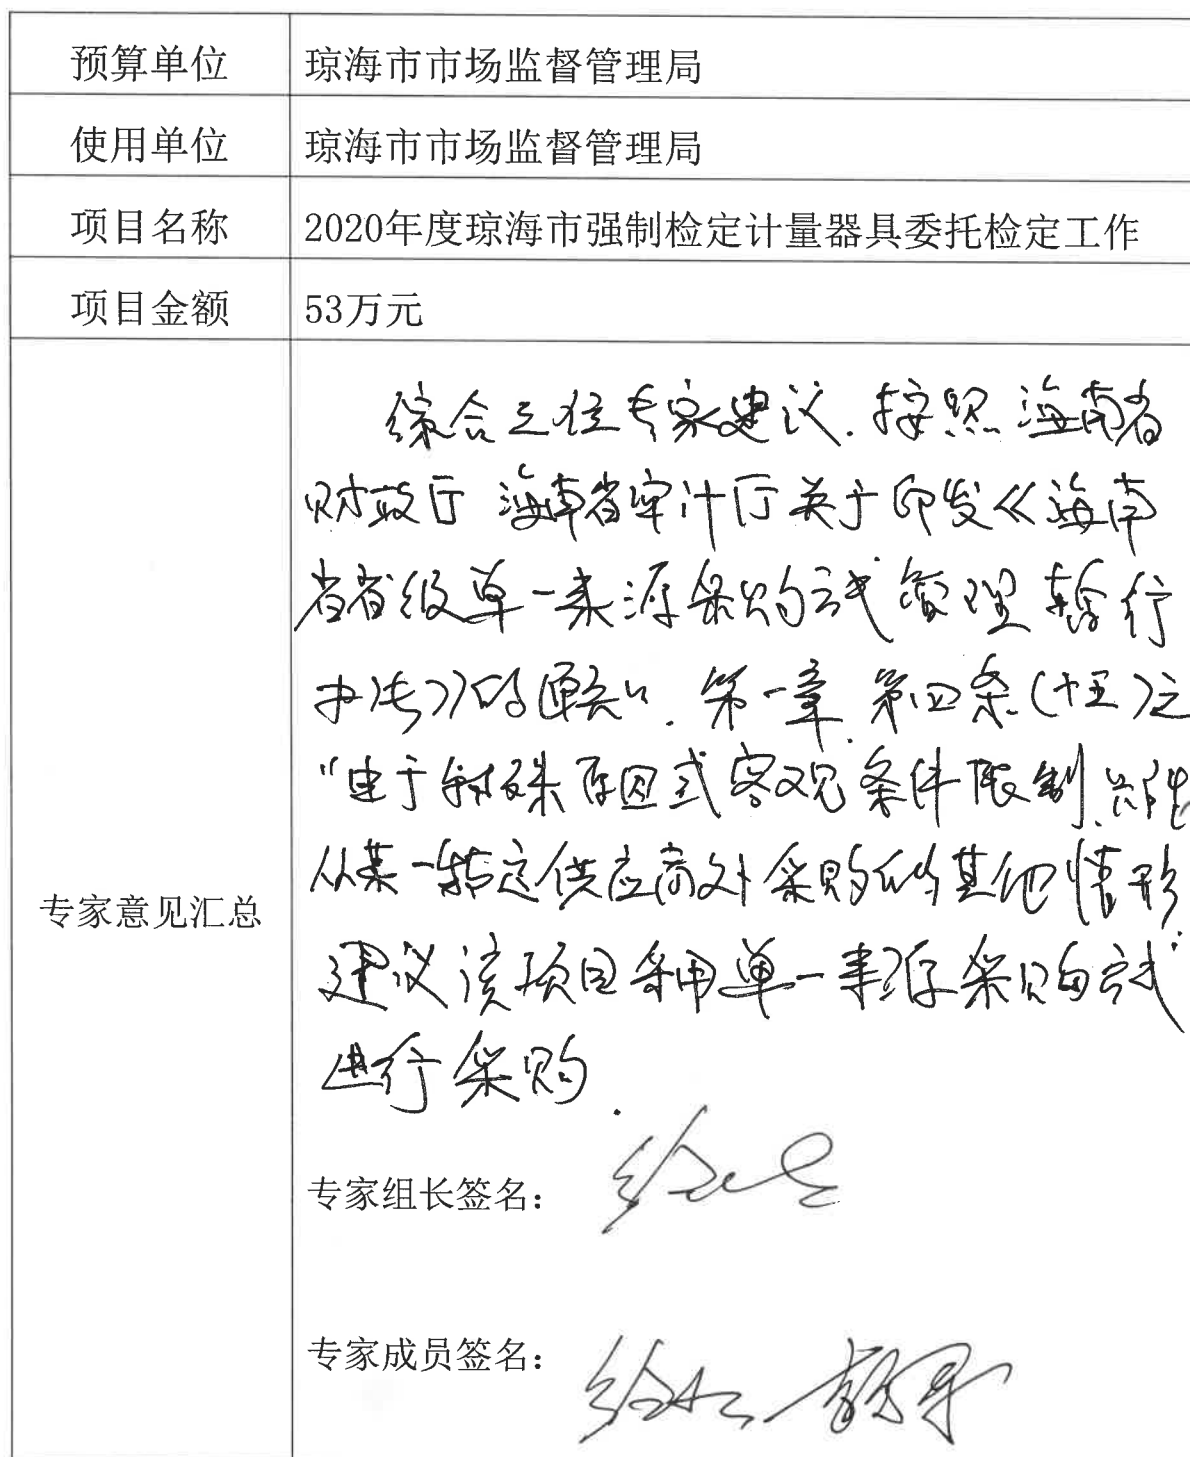 预算单位 琼海市市场监督管理局
使用单位 琼海市市场监督管理局
项目名称 2020年度琼海市强制检定计量器具委托检定工作
项目金额 53万元
专家意见汇总
综合三位专家建议.按照海南省
财政厅 海南省审计厅关于印发《海南
省省级单一来源采购方式管理暂行
办法》的通知".第一章.第四条(十五)之
"由于特殊原因或客观条件限制.只能
从某一特定供应商处采购的其他情形"
建议该项目采用单一来源采购方式
进行采购.
专家组长签名:
专家成员签名: